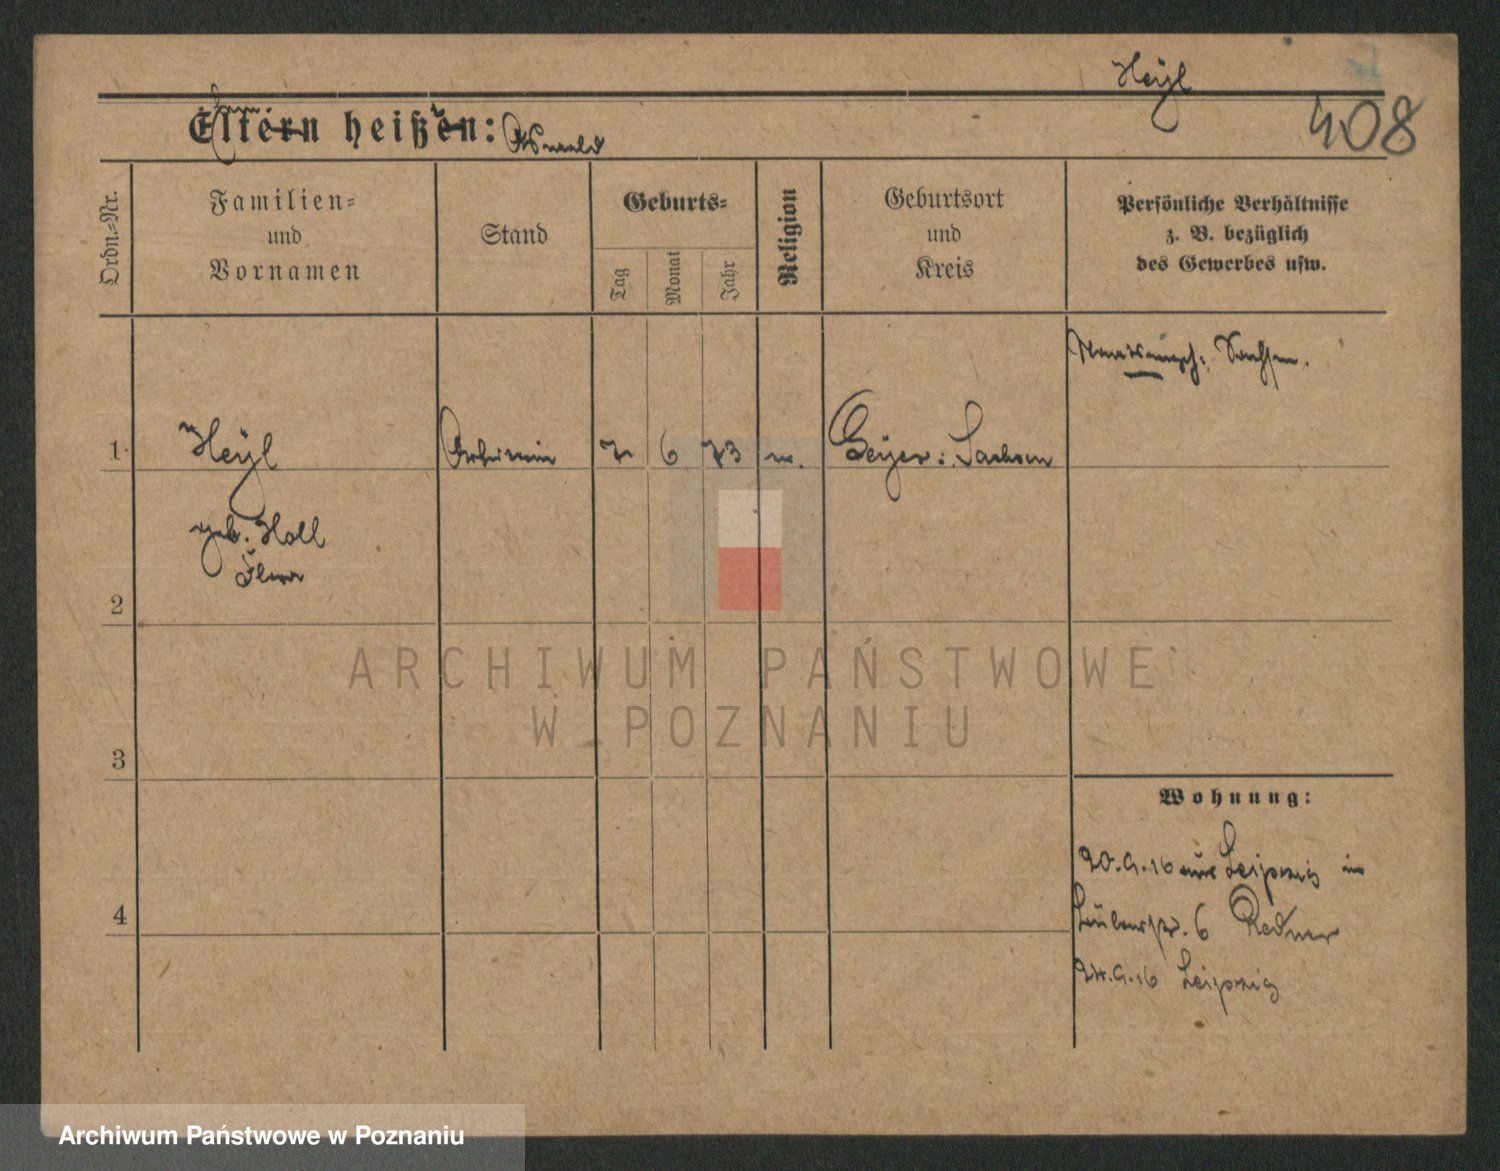 Heyl
408
Eltern heißen: Oswald
Ordn.-Nr.
Familien-
und
Vornamen
Stand
Geburts-
Tag
Monat
Jahr
Religion
Geburtsort
und
Kreis
Persönliche Verhältnisse
z. B. bezüglich
des Gewerbes usw.
Staatsangeh: Sachsen.
1
Heyl
7
6
73
m.
Geyer: Sachsen
geb. Holl
2
ARCHIWUM PAŃSTWOWE
W POZNANIU
3
Wohnung:
20.9.16 aus Leipzig in
6
4
24.9.16 Leipzig
Archiwum Państwowe w Poznaniu